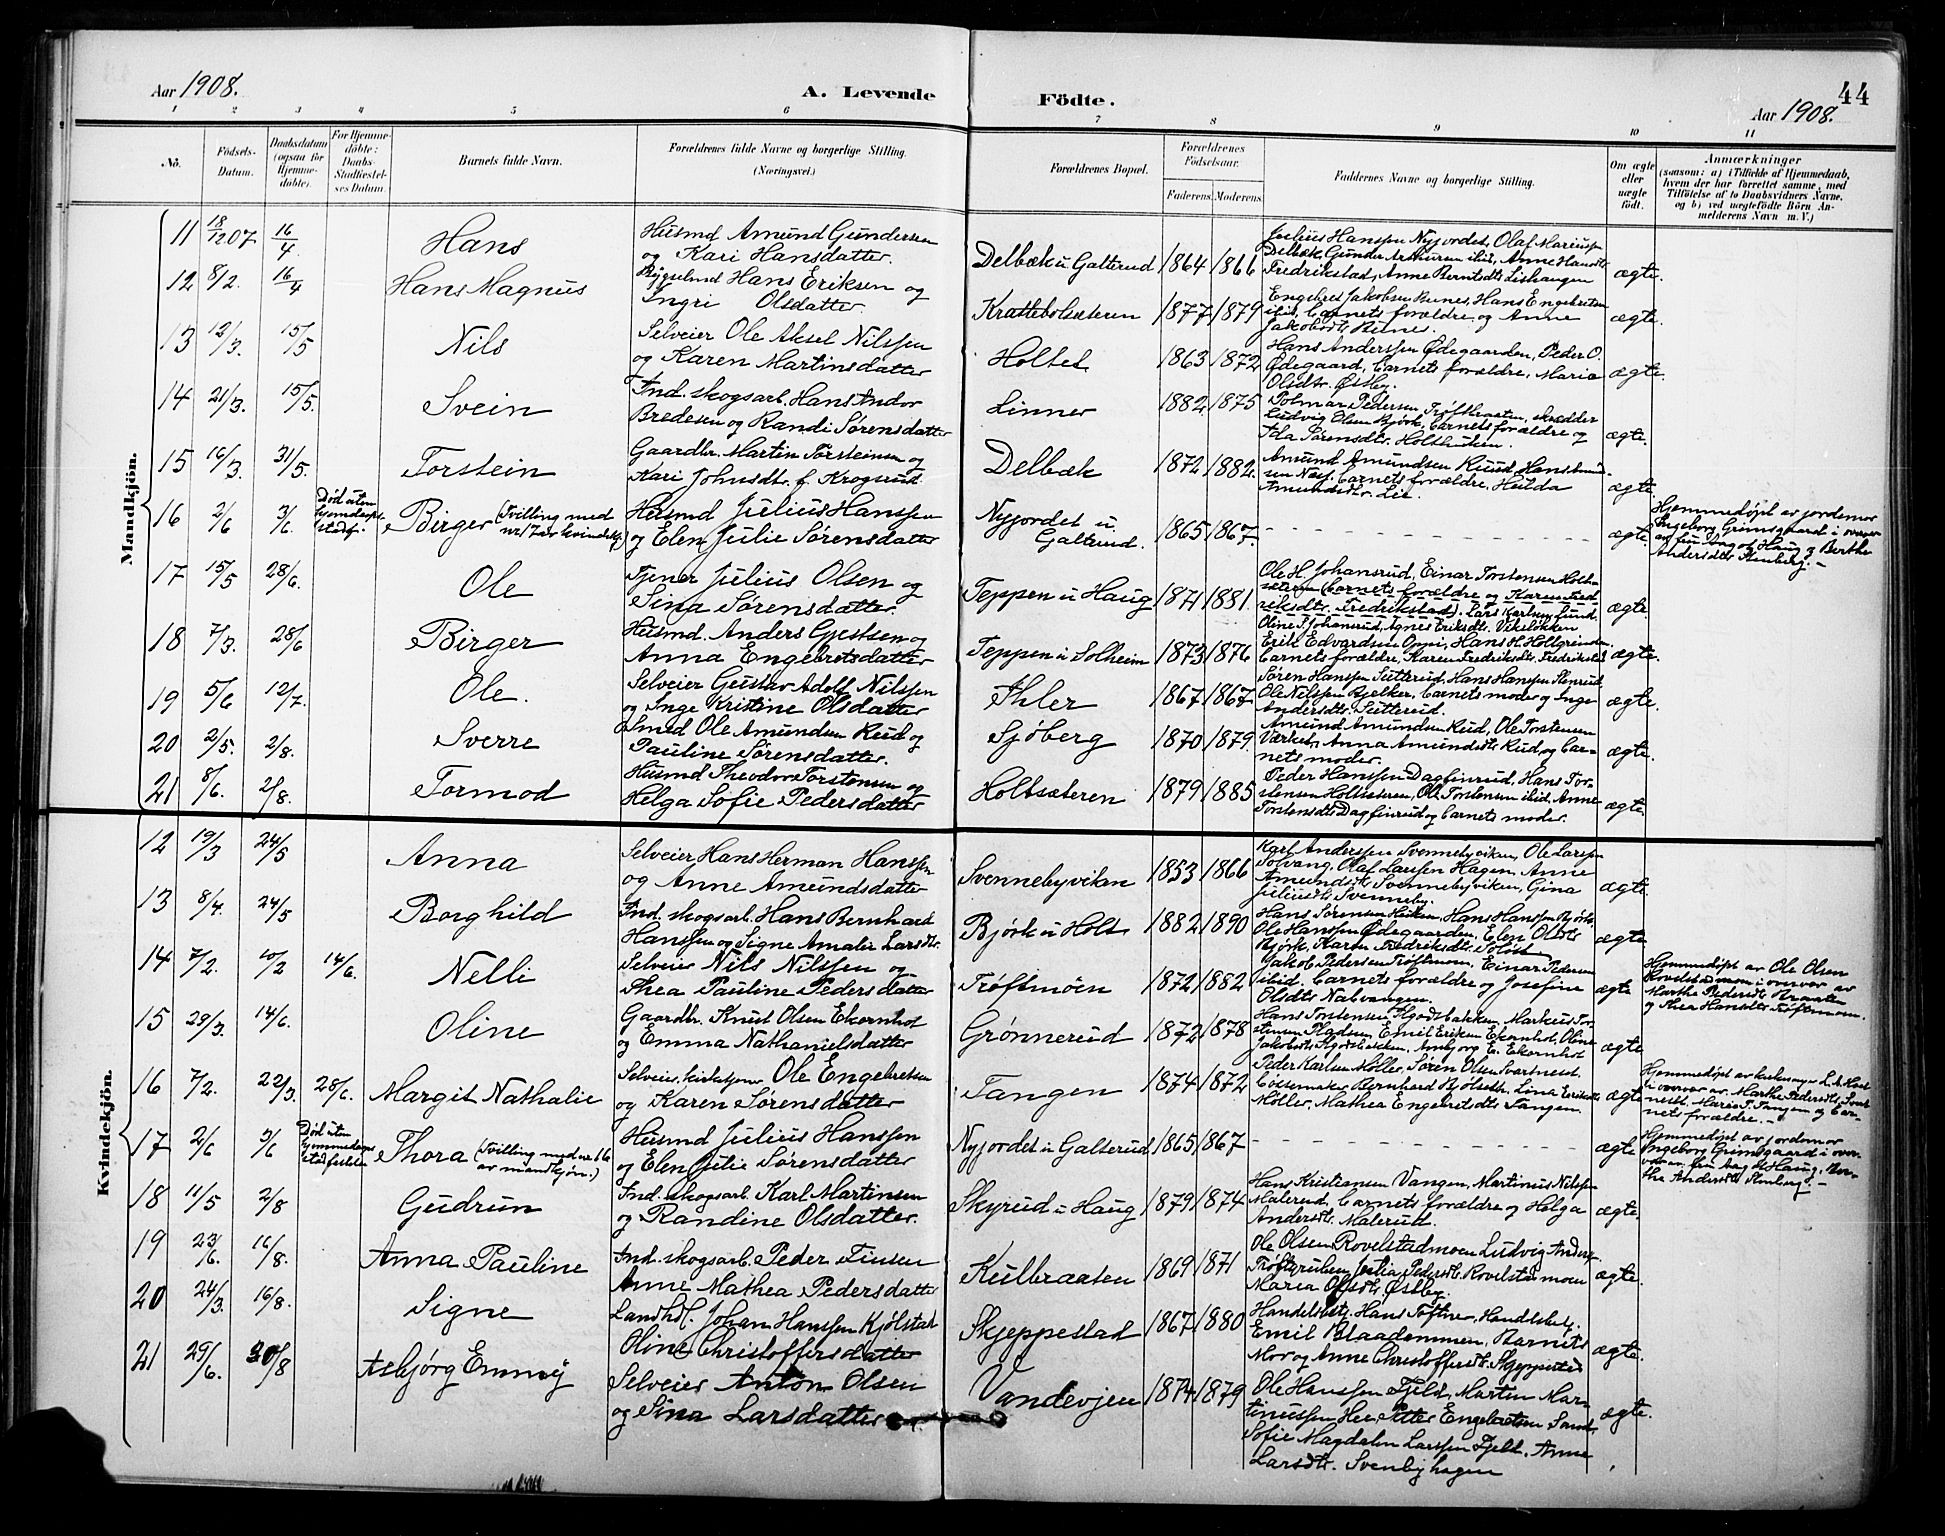 Aar 1908.
A. Levende Födte.
44
Aar 1908.
1 2 3 4 5 6 7 8 9 10 11
No.
Födsels-Datum.
Daabsdatum (ogsaa for Hjemme-döbte).
For Hjemme-döbte: Daabs-Stadfæstelses Datum.
Barnets fulde Navn.
Forældrenes fulde Navne og borgerlige Stilling. (Næringsvei.)
Forældrenes Bopæl.
Forældrenes Födselsaar.
Faderens. Moderens.
Faddernes Navne og borgerlige Stilling.
Om ægte eller uægte födt.
Anmærkninger (saasom: a) i Tilfælde af Hjemmedaab, hvem der har forrettet samme, med Tilföielse af to Daabsvidners Navne, og b) ved uægtefödte Börn Anmelderens Navn m. V.)
Mandkjön.
11 18/12 07 16/4 Hans Husmd Amund Gundersen og Kari Hansdatter. Delbæk u Galterud 1864 1866 Julius Hanssen Nyjordet, Olaf Mariuss Delbæk, Gunder ibid, Anne Hansdtr Fredrikstad, Anne Berntsdtr ægte.
12 8/2. 16/4 Hans Magnus Bygselmd Hans Eriksen og Ingri Olsdatter. Krattebölsæteren 1877 1879 Engebret Jakobsen Bunes, Hans Engebretsen ibid, barnets forældre og Anne Jakobsdtr Bunes. ægte.
13 12/3. 15/5 Nils Selveier Ole Aksel Nilssen og Karen Martinsdatter Holtet 1863 1872 Hans Anderssen Ødegaarden, Peder O. Ødegaard, barnets forældre, Maria Olsdtr. Østby. ægte.
14 21/3. 15/5. Svein Ind. skogsarb. Hans Andor Bredesen og Randi Sørensdatter Linner 1882 1875 Pedersen, skrædder Ludvig Olsen Bjørk, barnets forældre og Ida Sørensdtr. ægte.
15 16/3 31/5. Torstein Gaardbr. Martin Torsteinsen og Kari Johnsdtr. f. Krogsrud. Delbæk 1872 1882. Amund Amundsen Ruud, barnets forældre, Hulda Amundsdtr. Lie. ægte
16 2/6 3/6. Död uten Birger (Tvilling med nr 17 av kvindekj.) Husmd Julius Hanssen og Elen Julie Sørensdatter Nyjordet u Galterud. 1865 1867. ægte. Hjemmedøpt av jordemor Ingeborg Grimsgaard i overvær av fru Aagot Haug og Berthe Andersdtr. -
17 15/5 28/6. Ole Tjener Julius Olsen og Sina Sørensdatter. Teppen u Haug 1871 1881. Ole H. Johansrud, Einar Torstensen Holtsæteren, barnets forældre og Karen Fredriksdtr. Fredrikstad). Lars Karlsen Oline S. Johansrud, Agnes Eriksdtr. ægte
18 7/3. 28/6 Birger Husmd. Anders Gjestsen og Anna Engebretsdatter Teppen u Solheim 1873 1876 Erik Edvardsen Hans H. barnets forældre, Karen Fredriksdtr. ægte.
19 5/6 12/7. Ole. Selveier Gustav Adolf Nilssen og Inge Kristine Olsdatter Ihler 1867 1867 Søren Hanssen Sutterud, Hans Hanssen Ole Nilssen Bjelker, barnets moder og Inge Andersdtr. Sutterud. ægte.
20 2/5. 2/8. Sverre Smed Ole Amundsen Rud og Pauline Sørensdatter. Sjøberg 1870 1879. Amund Amundsen Rud, Ole Torstensen Værket, Anna Amundsdtr. Rud, og barnets moder. ægte.
21 8/6. 2/8. Tormod Husmd Theodor Torstensen og Helga Sofie Pedersdatter Holtsæteren 1879 1885 Peder Hanssen Dagfinrud, Hans Torstensen Holtsæteren, Ole Torstensen ibid, Anne Torstensdtr Dagfinrud og barnets moder. ægte
Kvindekjön.
12 19/3 24/5 Anna Selveier Hans Herman Hanssen og Anne Amundsdatter Svennebyviken 1853 1866 Karl Anderssen Svennebyviken, Ole Larssen Solvang, Olaf Larssen Hagen, Anne Amundsdtr Svennebyviken, Gina Juliusdtr Svenneby. ægte
13 8/4. 24/5 Borghild Ind. skogsarb. Hans Bernhard Hanssen og Signe Amalie Larsdtr. Bjørk u Holt 1882 1890 Hans Sørensen Hans Hanssen Bjørk, Ole Hanssen Ødegaarden, Elen Olsdtr Bjørk, Karen Fredriksdtr. ægte
14 7/2. 10/2 14/6. Nelli Selveier Nils Nilssen og Thea Pauline Pedersdatter Trøftmoen 1872 1882 Jakob Pedersen Trøftmoen, Einar Pedersen ibid, barnets forældre og Josefine Olsdtr Nabvangen. ægte Hjemmedøpt av Ole Olsen Rovelstadmoen i overvær av Marthe Pedersdtr. og Thea Hansdtr Trøftmoen.
15 29/3 14/6. Oline Gaardbr. Knut Olsen Ekornhol og Emma Nathanielsdatter Grønnerud 1872 1878 Hans Torstensen Markus Torstensen Pladsen, Emil Eriksen Ekornhol, Oline Jakobsdtr Ekornhol ægte
16 7/2. 22/3. 28/6. Margit Nathalie Selveier, kirketjener Ole Engebretsen og Karen Sørensdatter Tangen 1874 1872 Peder Karlsen Møller, Søren Olsen Svartnest, Bernhard Lina Eriksdtr Møller, Mathea Engebretsdtr Tangen. ægte Hjemmedøpt av kirkesanger i overvær av Marthe Pedersdtr. Tangen og barnets forældre. -
17 2/6 3/6 Död uten hjemmedaaps stadfestelse Thora (Tvilling med nr. 16 av mandkjøn.) Husmd Julius Hanssen og Elen Julie Sørensdatter Nyjordet u Galterud 1865 1867 ægte Hjemmedøpt av jordemor Ingeborg Grimsgaard i overvær av fru Aagot Haug, Berthe Andersdtr -
18 11/5 2/8 Gudrun Ind. skogsarb. Karl Martinsen og Randine Olsdatter. Skyrud u Haug 1879 1874 Hans Kristiansen Vangen, Martinus Nilssen Malerud, barnets forældre og Helga Andersdtr. Malerud. ægte.
19 23/6. 16/8. Anna Pauline Ind. skogsarb. Peder Finsen Anne Mathea Pedersdatter Kulbraaten 1869 1871 Ole Olsen Rovelstadmoen Ludvig Anderss. Pedersdtr. Rovelstadmoen Maria Olsdtr. Østby. ægte.
20 24/3. 16/8. Signe Landh. Johan Hanssen Kjølstad Oline Christoffersdatter Skjeppestad 1867 1880 Handelsbetj. Hans Toftner, Handelsbetj. Emil Blaadammen, Barnets Mor og Anne Christoffersdtr. Skjeppestad ægte.
21 29/6. 30/8 Asbjørg Emmy Selveier Anton Olsen og Sina Larsdatter Vandevjen 1874 1879 Ole Hanssen Fjeld, Martin Martinussen Petter Engebretsen Sofie Magdalen Larssen Fjeld. Anne Larsdtr. Svenbyhagen ægte.